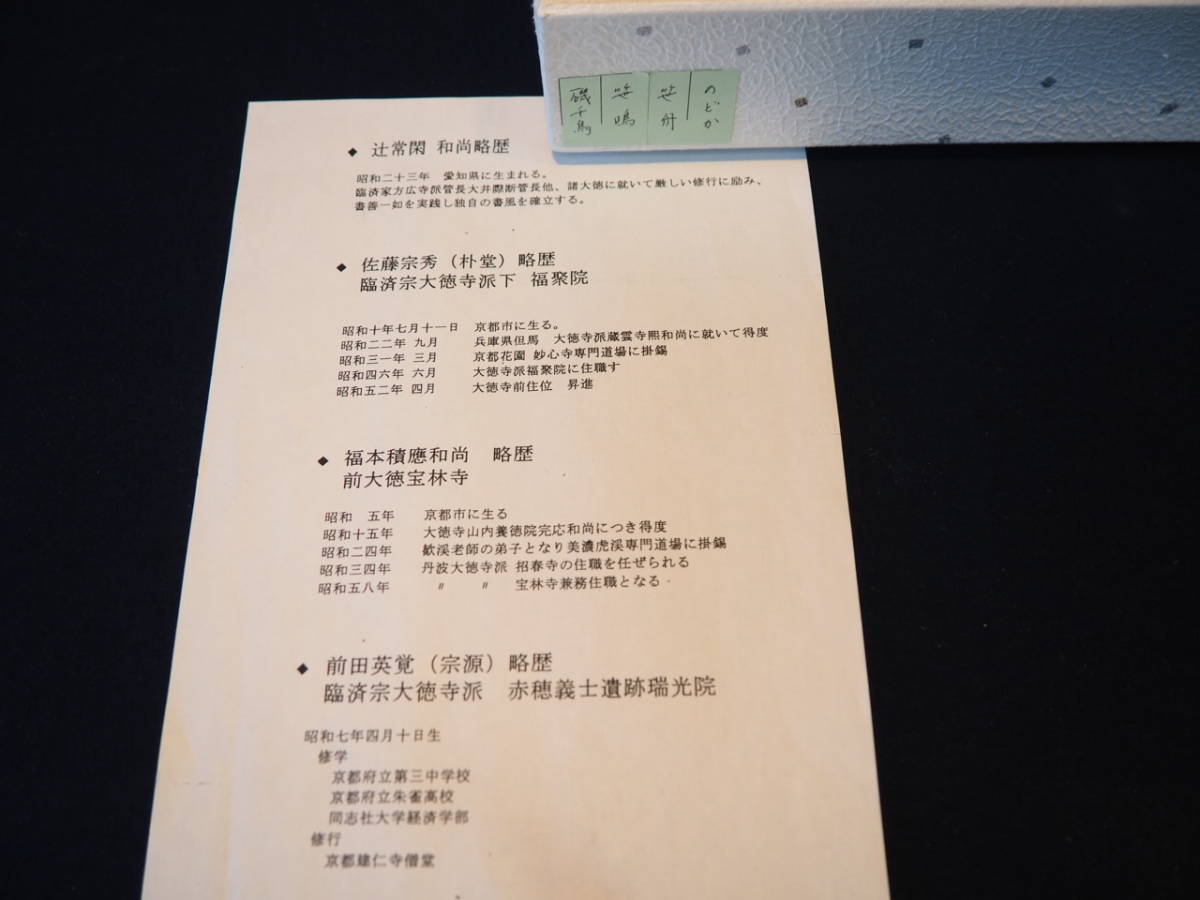 のどか
笹舟
笹鳴
磯千鳥
◆ 辻常閑 和尚略歴
昭和二十三年 愛知県に生まれる。
臨済家方広寺派管長大井際断管長他、諸大徳に就いて厳しい修行に励み、
書善一如を実践し独自の書風を確立する。
◆ 佐藤宗秀（朴堂）略歴
臨済宗大徳寺派下 福聚院
昭和十年七月十一日 京都市に生る。
昭和二二年 九月 兵庫県但馬 大徳寺派蔵雲寺熙和尚に就いて得度
昭和三一年 三月 京都花園 妙心寺専門道場に掛錫
昭和四六年 六月 大徳寺派福聚院に住職す
昭和五二年 四月 大徳寺前住位 昇進
◆ 福本積應和尚 略歴
前大徳宝林寺
昭和 五年 京都市に生る
昭和十五年 大徳寺山内養徳院完応和尚につき得度
昭和二四年 歓渓老師の弟子となり美濃虎渓専門道場に掛錫
昭和三四年 丹波大徳寺派 招春寺の住職を任ぜられる
昭和五八年 〃 〃 宝林寺兼務住職となる
◆ 前田英覚（宗源）略歴
臨済宗大徳寺派 赤穂義士遺跡瑞光院
昭和七年四月十日生
修学
京都府立第三中学校
京都府立朱雀高校
同志社大学経済学部
修行
京都建仁寺僧堂